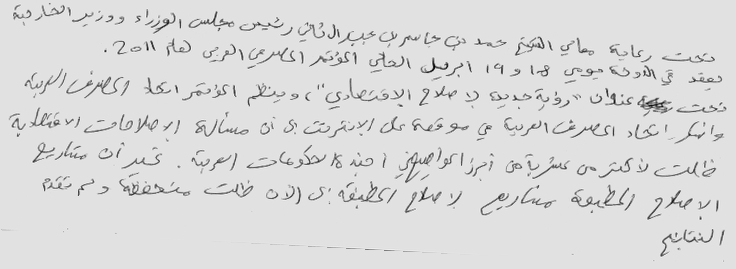 تحت رعاية معالي الشيخ حمد بن جاسم بن جبر آل ثاني رئيس مجلس الوزراء ووزير الخارجية
يعقد في الدوحة يومي 18 و 19 ابريل الحالي المؤتمر المصرفي العربي لعام 2011.
تحت عنوان "رؤية جديدة لاصلاح الاقتصادي"، وينظم المؤتمر اتحاد المصرف العربية
وانكر اتحاد المصرف العربية في موقعة على الانترنت ى ان مسألة الاصلاحات الاقتصادية
ظلت لأكثر من عشرية من أبرز المواضيع اجندة الحكومات العربية. غير أن مشاريع
الاصلاح المطبقة مشاريع لاصلاح المطبقة ى الان ظلت منخفضة ولم تقدم
النتائج